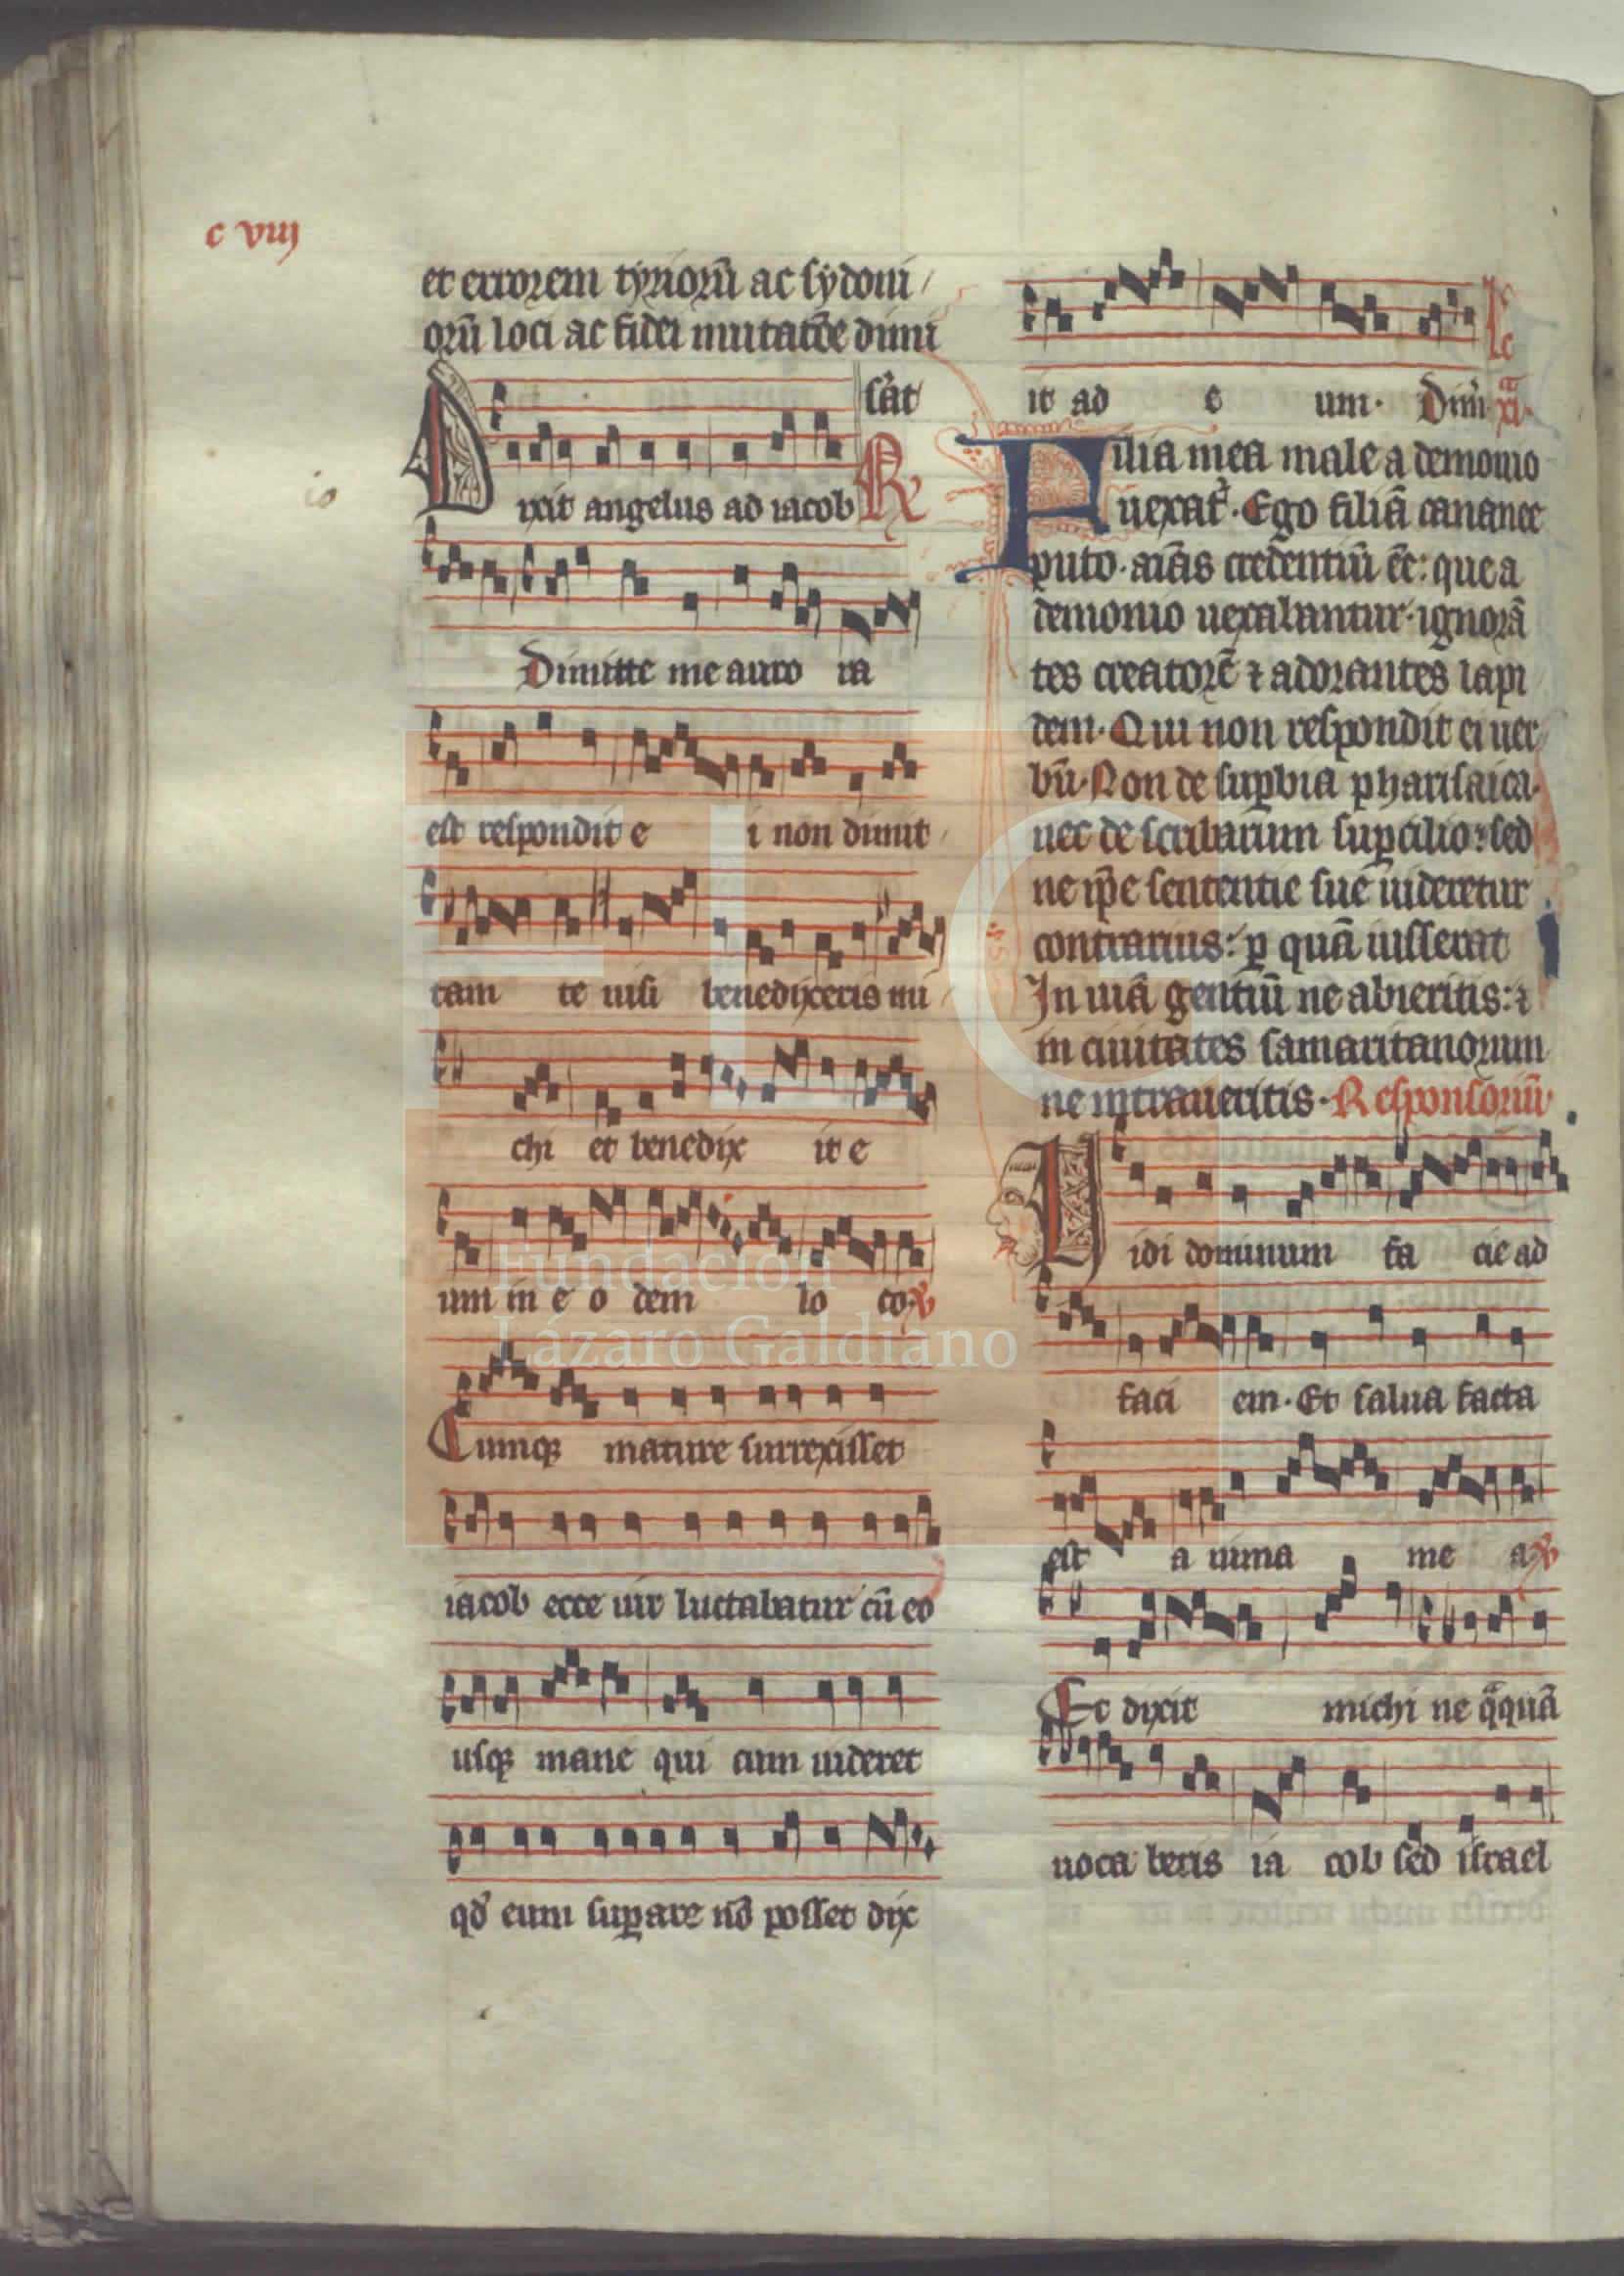 c viij
et errorem tyriorū ac sydoni
orū loci ac fidei mutatōe dimi
sāt
Dixit angelus ad iacob R
Dimitte me auro ra
est respondit e i non dimit
tam te nisi benedixeris mi
chi et benedix it e
um in e o dem lo co. v
Cumqꝫ mature surrexisset
iacob ecce uir luctabatur cū eo
usqꝫ mane qui cum uideret
qd eum suꝑare nō posset dix
it ad e um. Dim̄
Filia mea male a demonio
uexat᷑. Ego filiā cananee
puto. aīas credentiū ēē: que a
demonio uexabantur. ignorā
tes creatorē ⁊ adorantes lapi
dem. Qui non respondit ei uer
bū. Non de suꝑbia pharisaica.
nec de scribarum suꝑcilio: sed
ne ip̄e sententie sue uideretur
contrarius: ꝑ quā iusserat
In uiā gentiū ne abieritis: ⁊
in ciuitates samaritanorum
ne intraueritis. Responsoriū
Uidi dominum fa cie ad
faci em. Et salua facta
est a nima me a v
Et dixit michi ne q̄quā
uoca beris ia cob sed israel
FLG
Fundación
Lázaro Galdiano